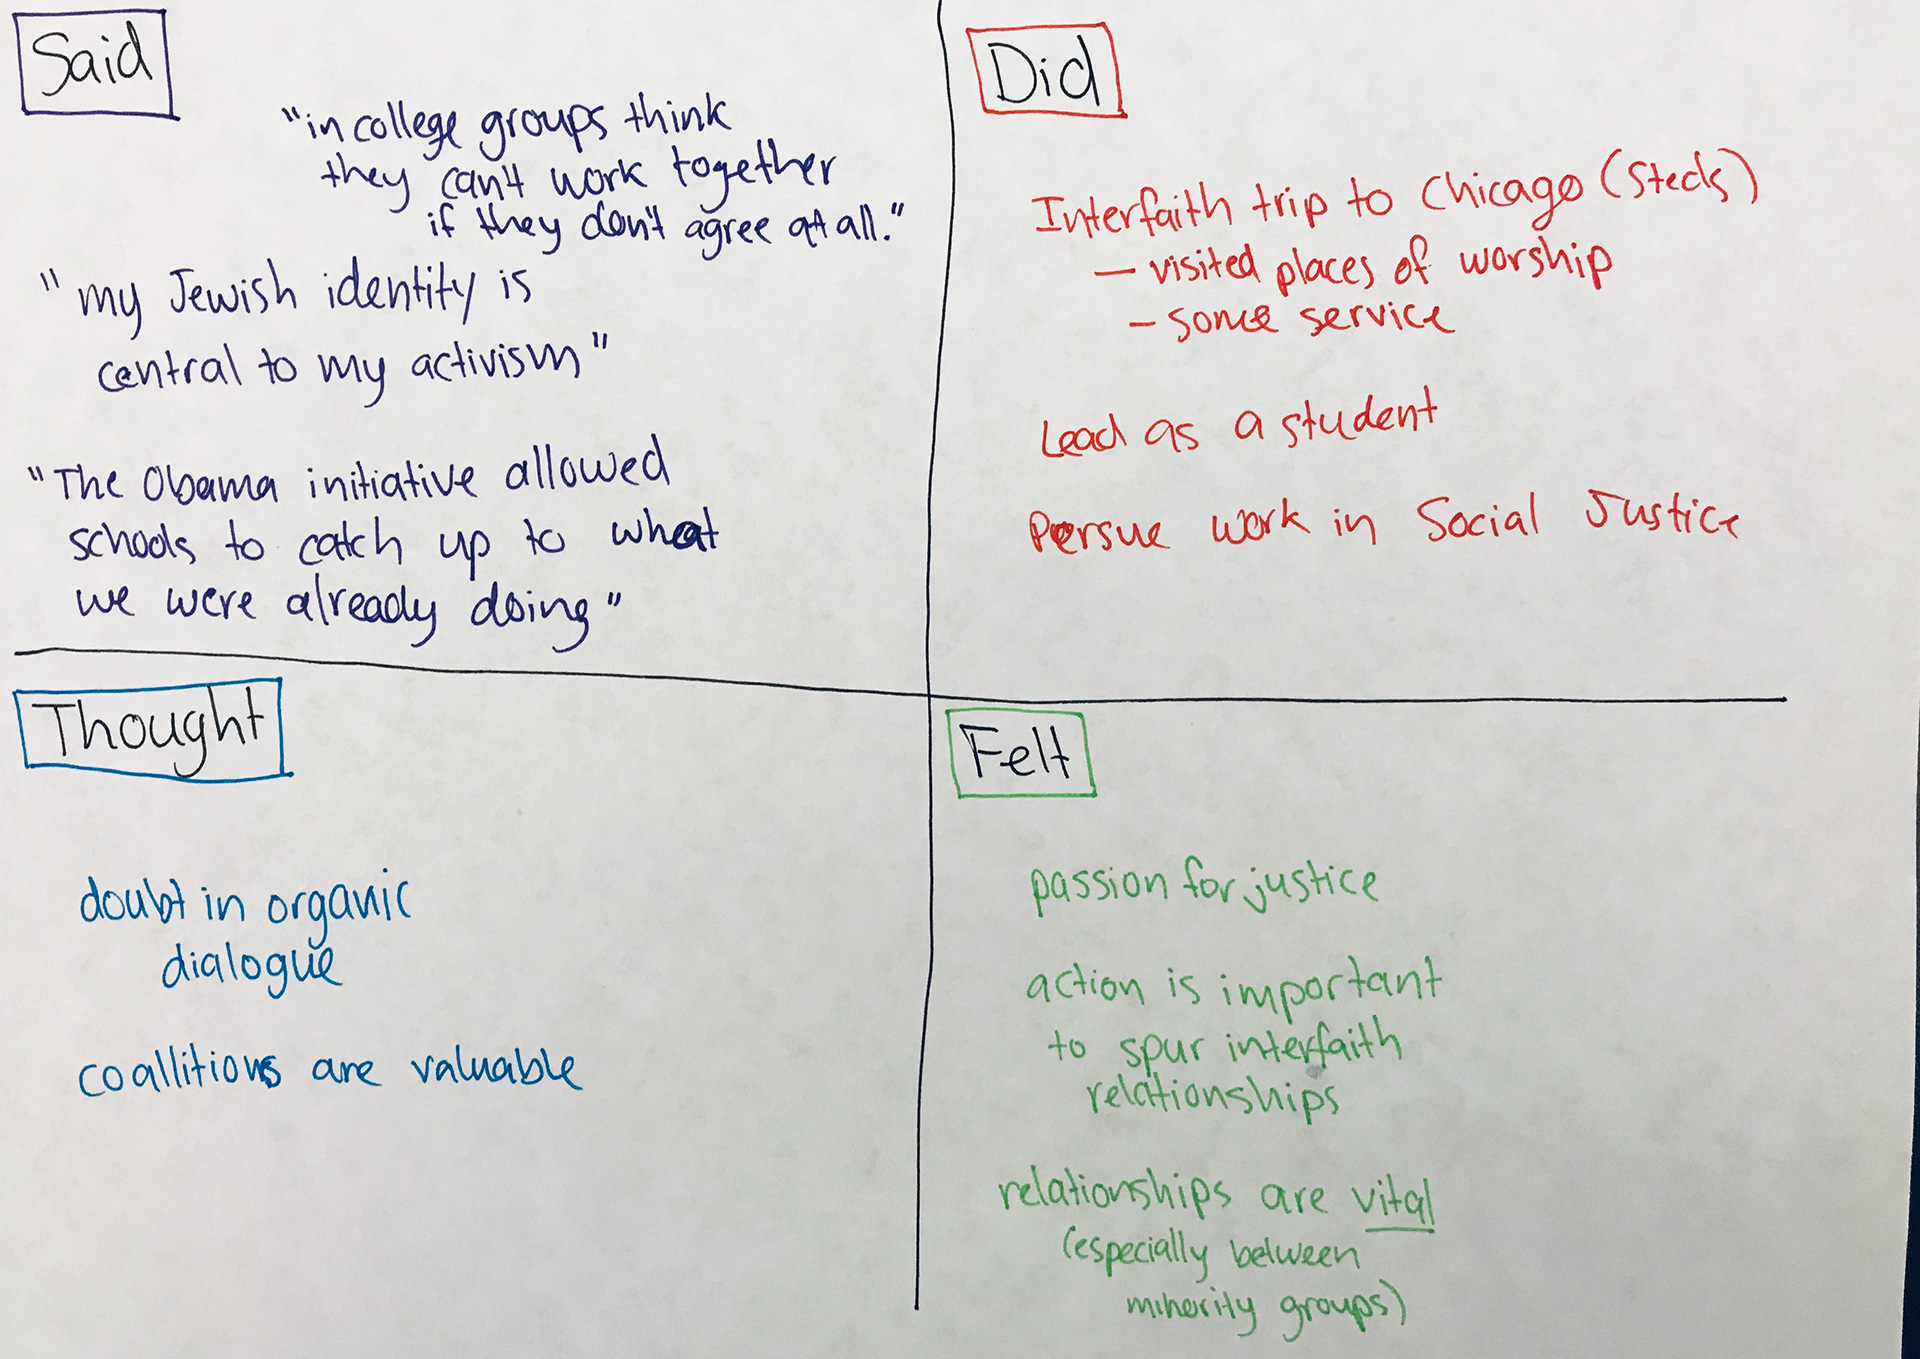 Said
"in college groups think
they can't work together
if they don't agree at all."
"my Jewish identity is
central to my activism"
"The Obama initiative allowed
schools to catch up to what
we were already doing"
Did
Interfaith trip to Chicago (Steds)
- visited places of worship
- some service
Lead as a student
Persue work in Social Justice
Thought
doubt in organic
dialogue
coallitions are valuable
Felt
passion for justice
action is important
to spur interfaith
relationships
relationships are vital
(especially between
minority groups)